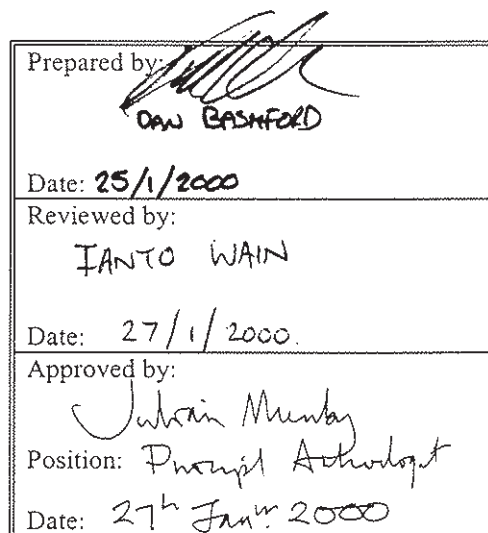 Prepared by:
DAN BASHFORD
Date: 25/1/2000
Reviewed by:
IANTO WAIN
Date: 27/1/2000.
Approved by:
Julian Munby
Position: Principal Archaeologist
Date: 27th Janry. 2000